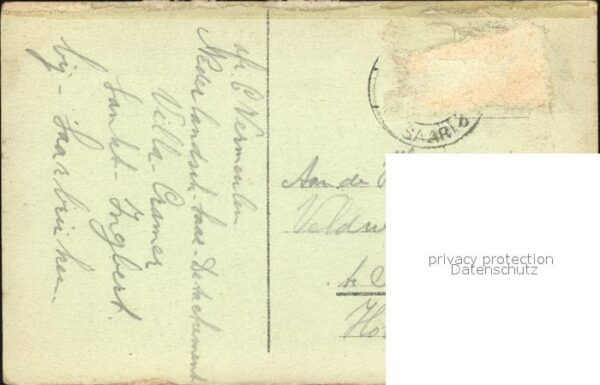 afz. C Vermeulen
Nederlandsch-Saar-Detachement
Villa-Cramer
Sankt-Ingbert.
bij-Saarbrücken.
SAARL
Aan de
Veldw
b.
Ho
privacy protection
Datenschutz